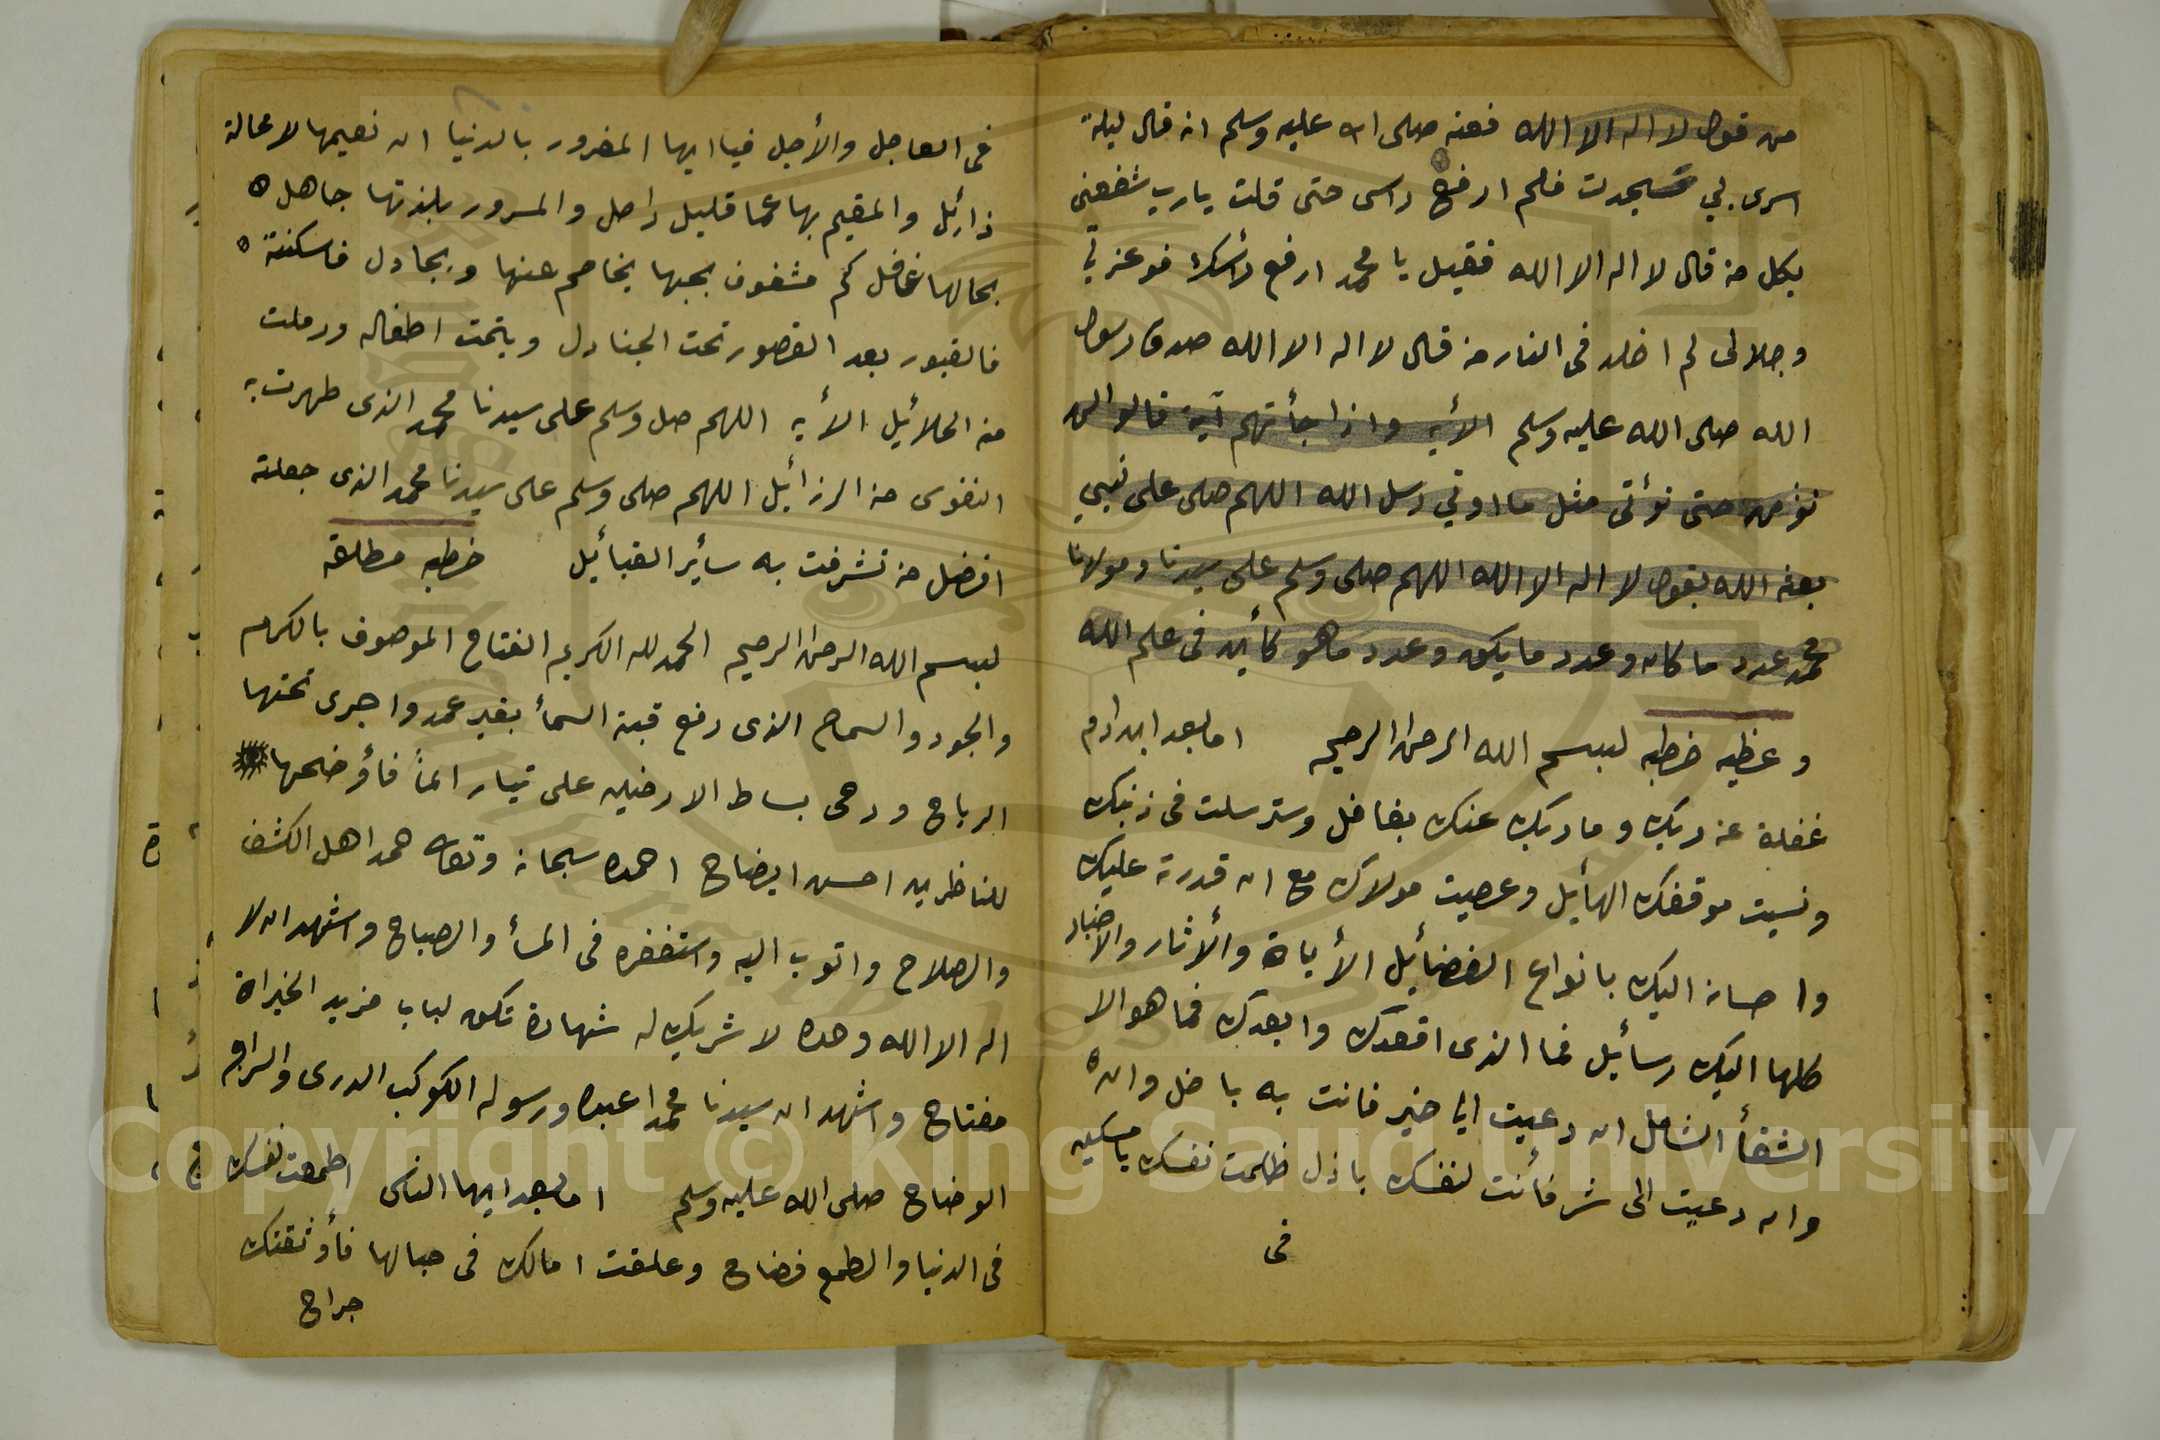 من قول لا اله الا الله فعنه صلى الله عليه وسلم انه قال ليلة
اسرى بي سجدت فلم ارفع راسى حتى قلت يارب شفعنى
بكل من قال لا اله الا الله فقيل يا محمد ارفع رأسك فوعزتي
وجلالى لم اخلد فى النار من قال لا اله الا الله صدق رسول
الله صلى الله عليه وسلم الأيه واذا جأتهم آية قالوا لن
نؤمن حتى نؤتى مثل ما اوتي رسل الله اللهم صلى على نبي
بعثه الله بقول لا اله الا الله اللهم صلى وسلم على سيدنا ومولانا
محمد عدد ما كان وعدد ما يكون وعدد ما هو كأين فى علم الله
وعظيه خطبه لبسم الله الرحمن الرحيم اما بعد ابن ادم
غفلة عن ربك وما ربك عنك بغافل وسترسلت فى ذنبك
ونسيت موقفك الهأيل وعصيت مولاك مع ان قدرته عليك
واحسانه اليك بانواع الفضأيل الأياة والأثار والاخبار
كلها اليك رسأيل فما الذى اقعدك وابعدك فما هو الا
الشقأ الشامل ان دعيت الي خير فانت به باخل وان
وان دعيت الى شر فأنت لنفسك باذل ظلمت نفسك يامسكين
فى
فى العاجل والأجل فيا ايها المغرور بالدنيا ان نعيمها لا محالة
زائيل والمقيم بها عما قليل راحل والمسرور بلذتها جاهل ه
بحالها غافل كم مشغوف بحبها يخاصم عنها ويجادل فاسكنته ه
فالقبور بعد القصور تحت الجنادل ويتمت اطفاله ورملت
منه الحلائيل الأيه اللهم صل وسلم على سيدنا محمد الذى طهرت به
النفوس من الرزأيل اللهم صلى وسلم على سيدنا محمد الذى جعلته
افضل من تشرفت به سأير القبأيل خطبه مطلقه
لبسم الله الرحمن الرحيم الحمد لله الكريم الفتاح الموصوف بالكرم
والجود والسماح الذى رفع قبة السمأ بغير عمد واجرى تحتها
الرياح ودحى بساط الارضين على تيار المأ فأوضحها
للناظرين احسن ايضاح احمده سبحانه وتعالى حمد اهل الكشف
والصلاح واتوب اليه واستغفره فى المسأ والصباح واشهد ان لا
اله الا الله وحده لا شريك له شهادة تكون لباب مزيد الخيراة
مفتاح واشهد ان سيدنا محمدا عبده ورسوله الكوكب الدرى والسراج
الوضاح صلى الله عليه وسلم اما بعد ايها الناس اطمعت نفسك
فى الدنيا والطمع فضاح وعلقت امالك فى حبالها فأوثقتك
جراح
Copyright © King Saud University